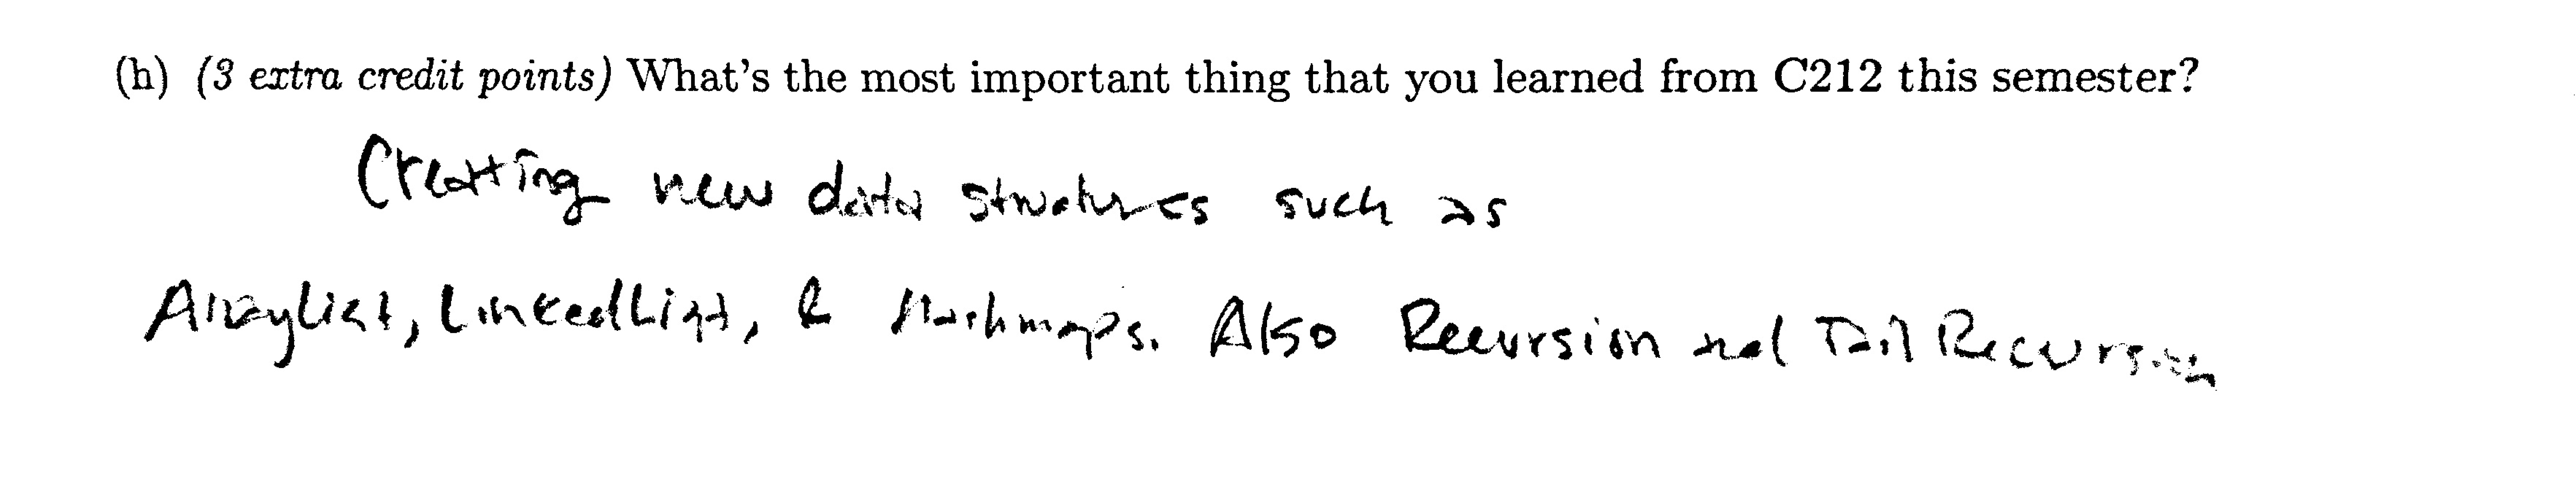 (h) (3 extra credit points) What's the most important thing that you learned from C212 this semester?
Creating new data structures such as
ArrayList, LinkedList, & Hashmaps. Also Recursion and Tail Recursion